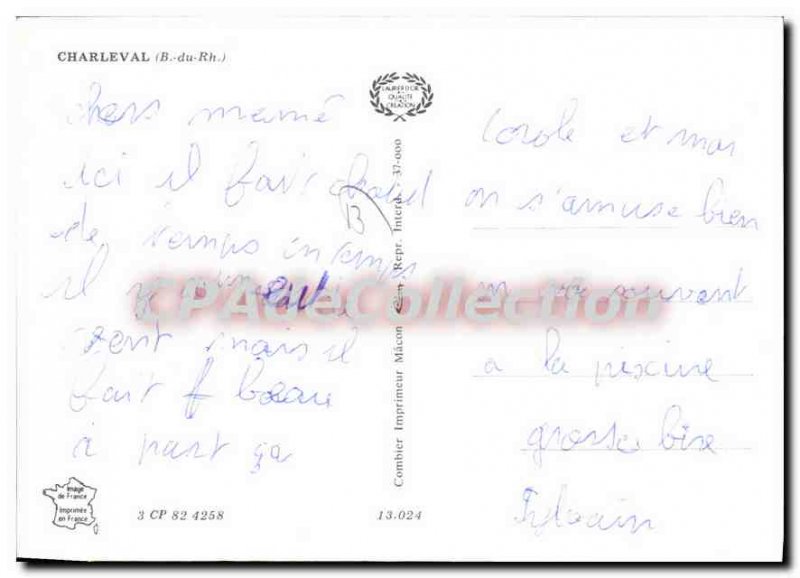 CHARLEVAL (B.-du-Rh.)
LAURIER D'OR
QUALITÉ
CRÉATION
chers mamé
ici il fait chaud
B
de temps in temps
il y
vent mais il
fait beau
à part ça
Carole et moi
on s'amuse bien
on va souvant
a la piscine
grosse bise
Sylvain
CPAdeCollection
Combier Imprimeur Mâcon
Repr. Interd. 37-000
Image
de France
Imprimée
en France
3 CP 82 4258
13.024